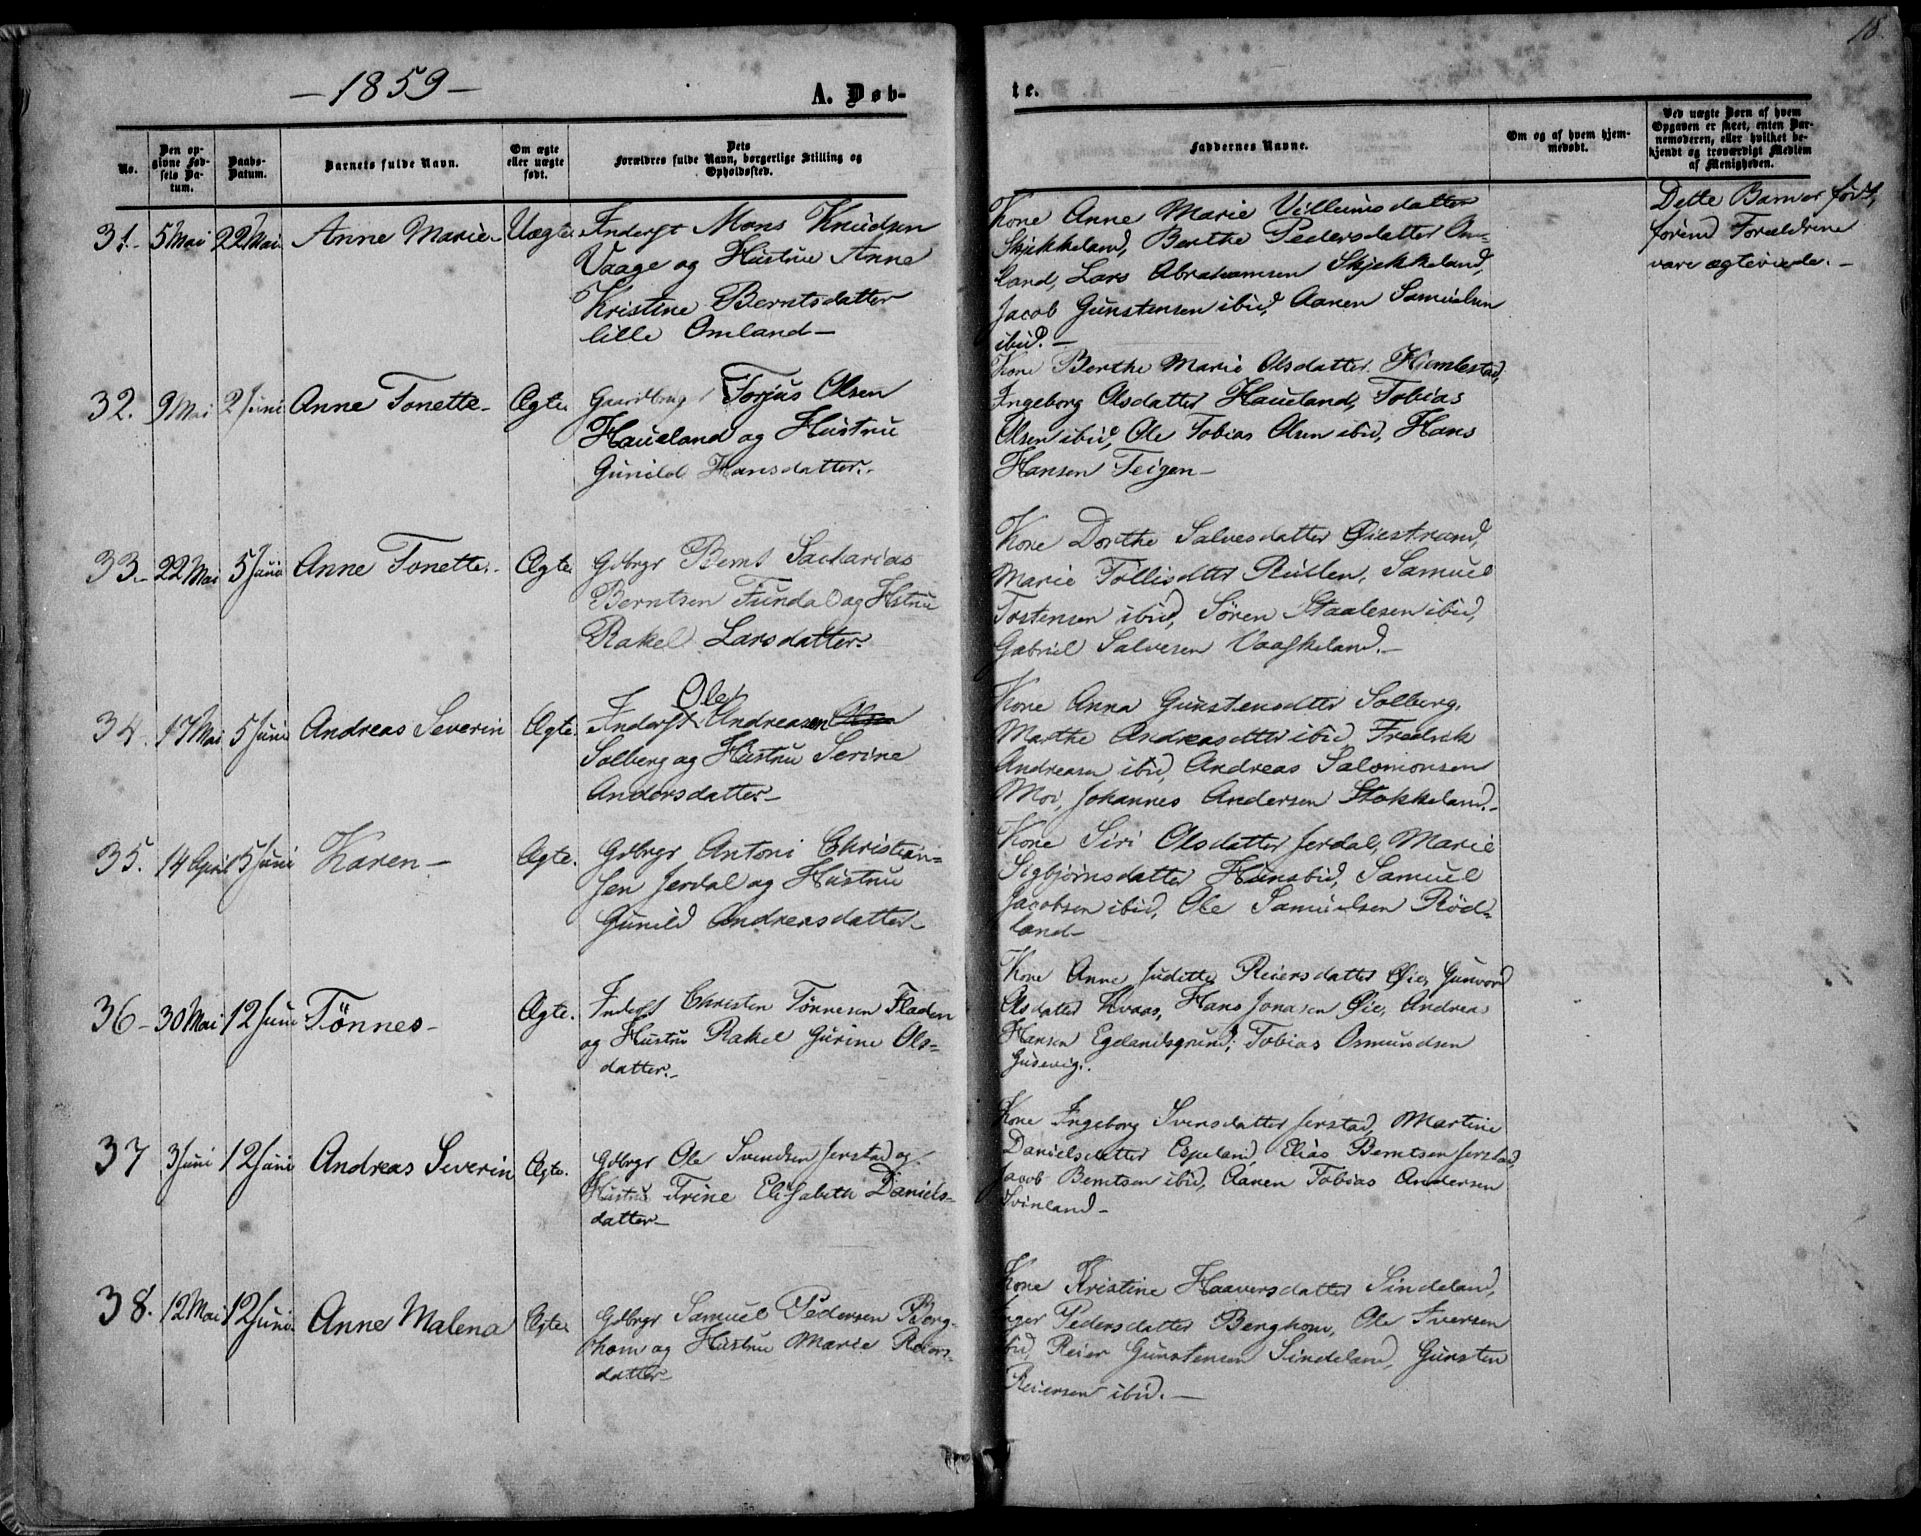 18.
— 1859 —
A. Døb-
te.
No.
Den op-
givne Fød-
sels Da-
tum.
Daabs-
Datum.
Barnets fulde Navn.
Om ægte
eller uægte
født.
Dets
Forældres fulde Navn, borgerlige Stilling og
Opholdssted.
Faddernes Navne.
Om og af hvem hjem-
medøbt.
Ved uægte Børn af hvem
Opgaven er skeet, enten Bar-
nemoderen, eller hvilket be-
kjendt og troværdigt Medlem
af Menigheden.
31. 5 Mai 22 Mai Anne Marie Uægte Inderst Mons Knudsen
Vaage og Hustru Anne
Kristine Berntsdatter
lille Omland —
Kone Anne Marie Villumsdatter
Skjekkeland, Berthe Pedersdatter Om-
land, Lars Abrahamsen Skjekkeland,
Jacob Gunstensen ibid, Aanen Samuelsen
ibid. —
Dette Barn er født,
førend Forældrene
vare ægteviede. —
32. 9 Mai 2 Juni Anne Tonette — Ægte Gaardbrug Torjus Olsen
Haueland og Hustru
Gunild Hansdatter. —
Kone Berthe Marie Olsdatter Hiemlestad,
Ingeborg Olsdatter Haueland, Tobias
Olsen ibid, Ole Tobias Olsen ibid, Hans
Hansen Teigen —
33. 22 Mai 5 Juni Anne Tonette. Ægte Gdbrgr Bernt Sacharias
Berntsen Fundal og Hstru
Rakel Larsdatter.
Kone Dorthe Salvesdatter Øiestrand,
Marie Tollisdtter Rullen, Samuel
Tostensen ibid, Søren Staalesen ibid,
Gabriel Salvesen Vaaskeland. —
34. 17 Mai 5 Juni Andreas Severin Ægte. Inderst Ole Andreasen Olsen
Solberg og Hustru Serine
Andersdatter —
Kone Anna Gunstensdtter Solberg,
Marthe Andreasdtter ibid Fredrik
Andreasen ibid, Andreas Salomonsen
Moi, Johannes Andersen Stokkeland. —
35. 14 April 5 Juni Karen — Ægte. Gdbrgr Antoni Christian-
sen Jerdal og Hustru
Gunild Andreasdatter —
Kone Siri Olsdatter Jerdal, Marie
Sigbjørnsdatter Hunsbid, Samuel
Jacobsen ibid, Ole Samuelsen Rød-
land —
36 — 30 Mai 12 Juni Tönnes — Ægte. Inderst Christen Tönnesen Fladen
og Hustru Rakel Gurine Ols-
datter. —
Kone Anne Juditte Reiersdatter Øie, Gunvord
Olsdatter Kvaas, Hans Jonasen Øie, Andreas
Hansen Egelandsgrund, Tobias Osmundsen
Gudevig.
37 3 Juni 12 Juni Andreas Severin Ægte. Gdbrgr Ole Svendsen Jerstad og
Hustru Trine Elisabeth Daniels-
datter —
Kone Ingeborg Svensdatter Jerstad, Martine
Danielsdatter Espeland, Elias Berntsen Jerstad,
Jacob Berntsen ibid, Aanen Tobias Andersen
Svinland —
38. 12 Mai 12 Juni Anne Malena Ægte Gdbrgr Samuel Pedersen Berg-
hom og Hustru Marie Reiers-
datter
Kone Kristine Haaversdatter Sindeland,
Inger Pedersdatter Berghom, Ole Iversen
ibid, Reier Gunstensen Sindeland, Gunsten
Reiersen ibid. —